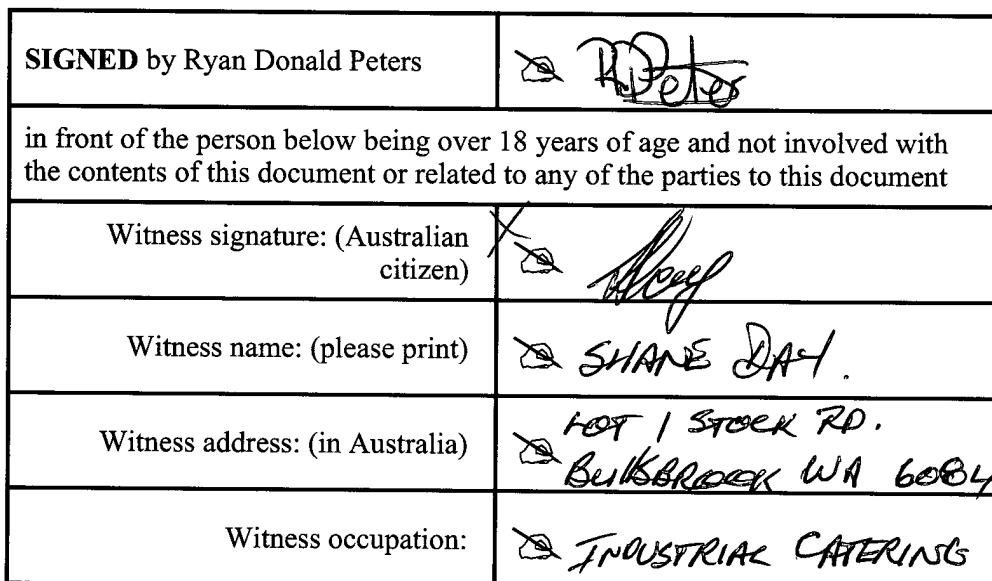 SIGNED by Ryan Donald Peters
RDPeters
in front of the person below being over 18 years of age and not involved with
the contents of this document or related to any of the parties to this document
Witness signature: (Australian
citizen)
Witness name: (please print)
SHANE DAY.
Witness address: (in Australia)
LOT 1 STOCK RD.
BULLSBROOK WA 6084
Witness occupation:
INDUSTRIAL CATERING